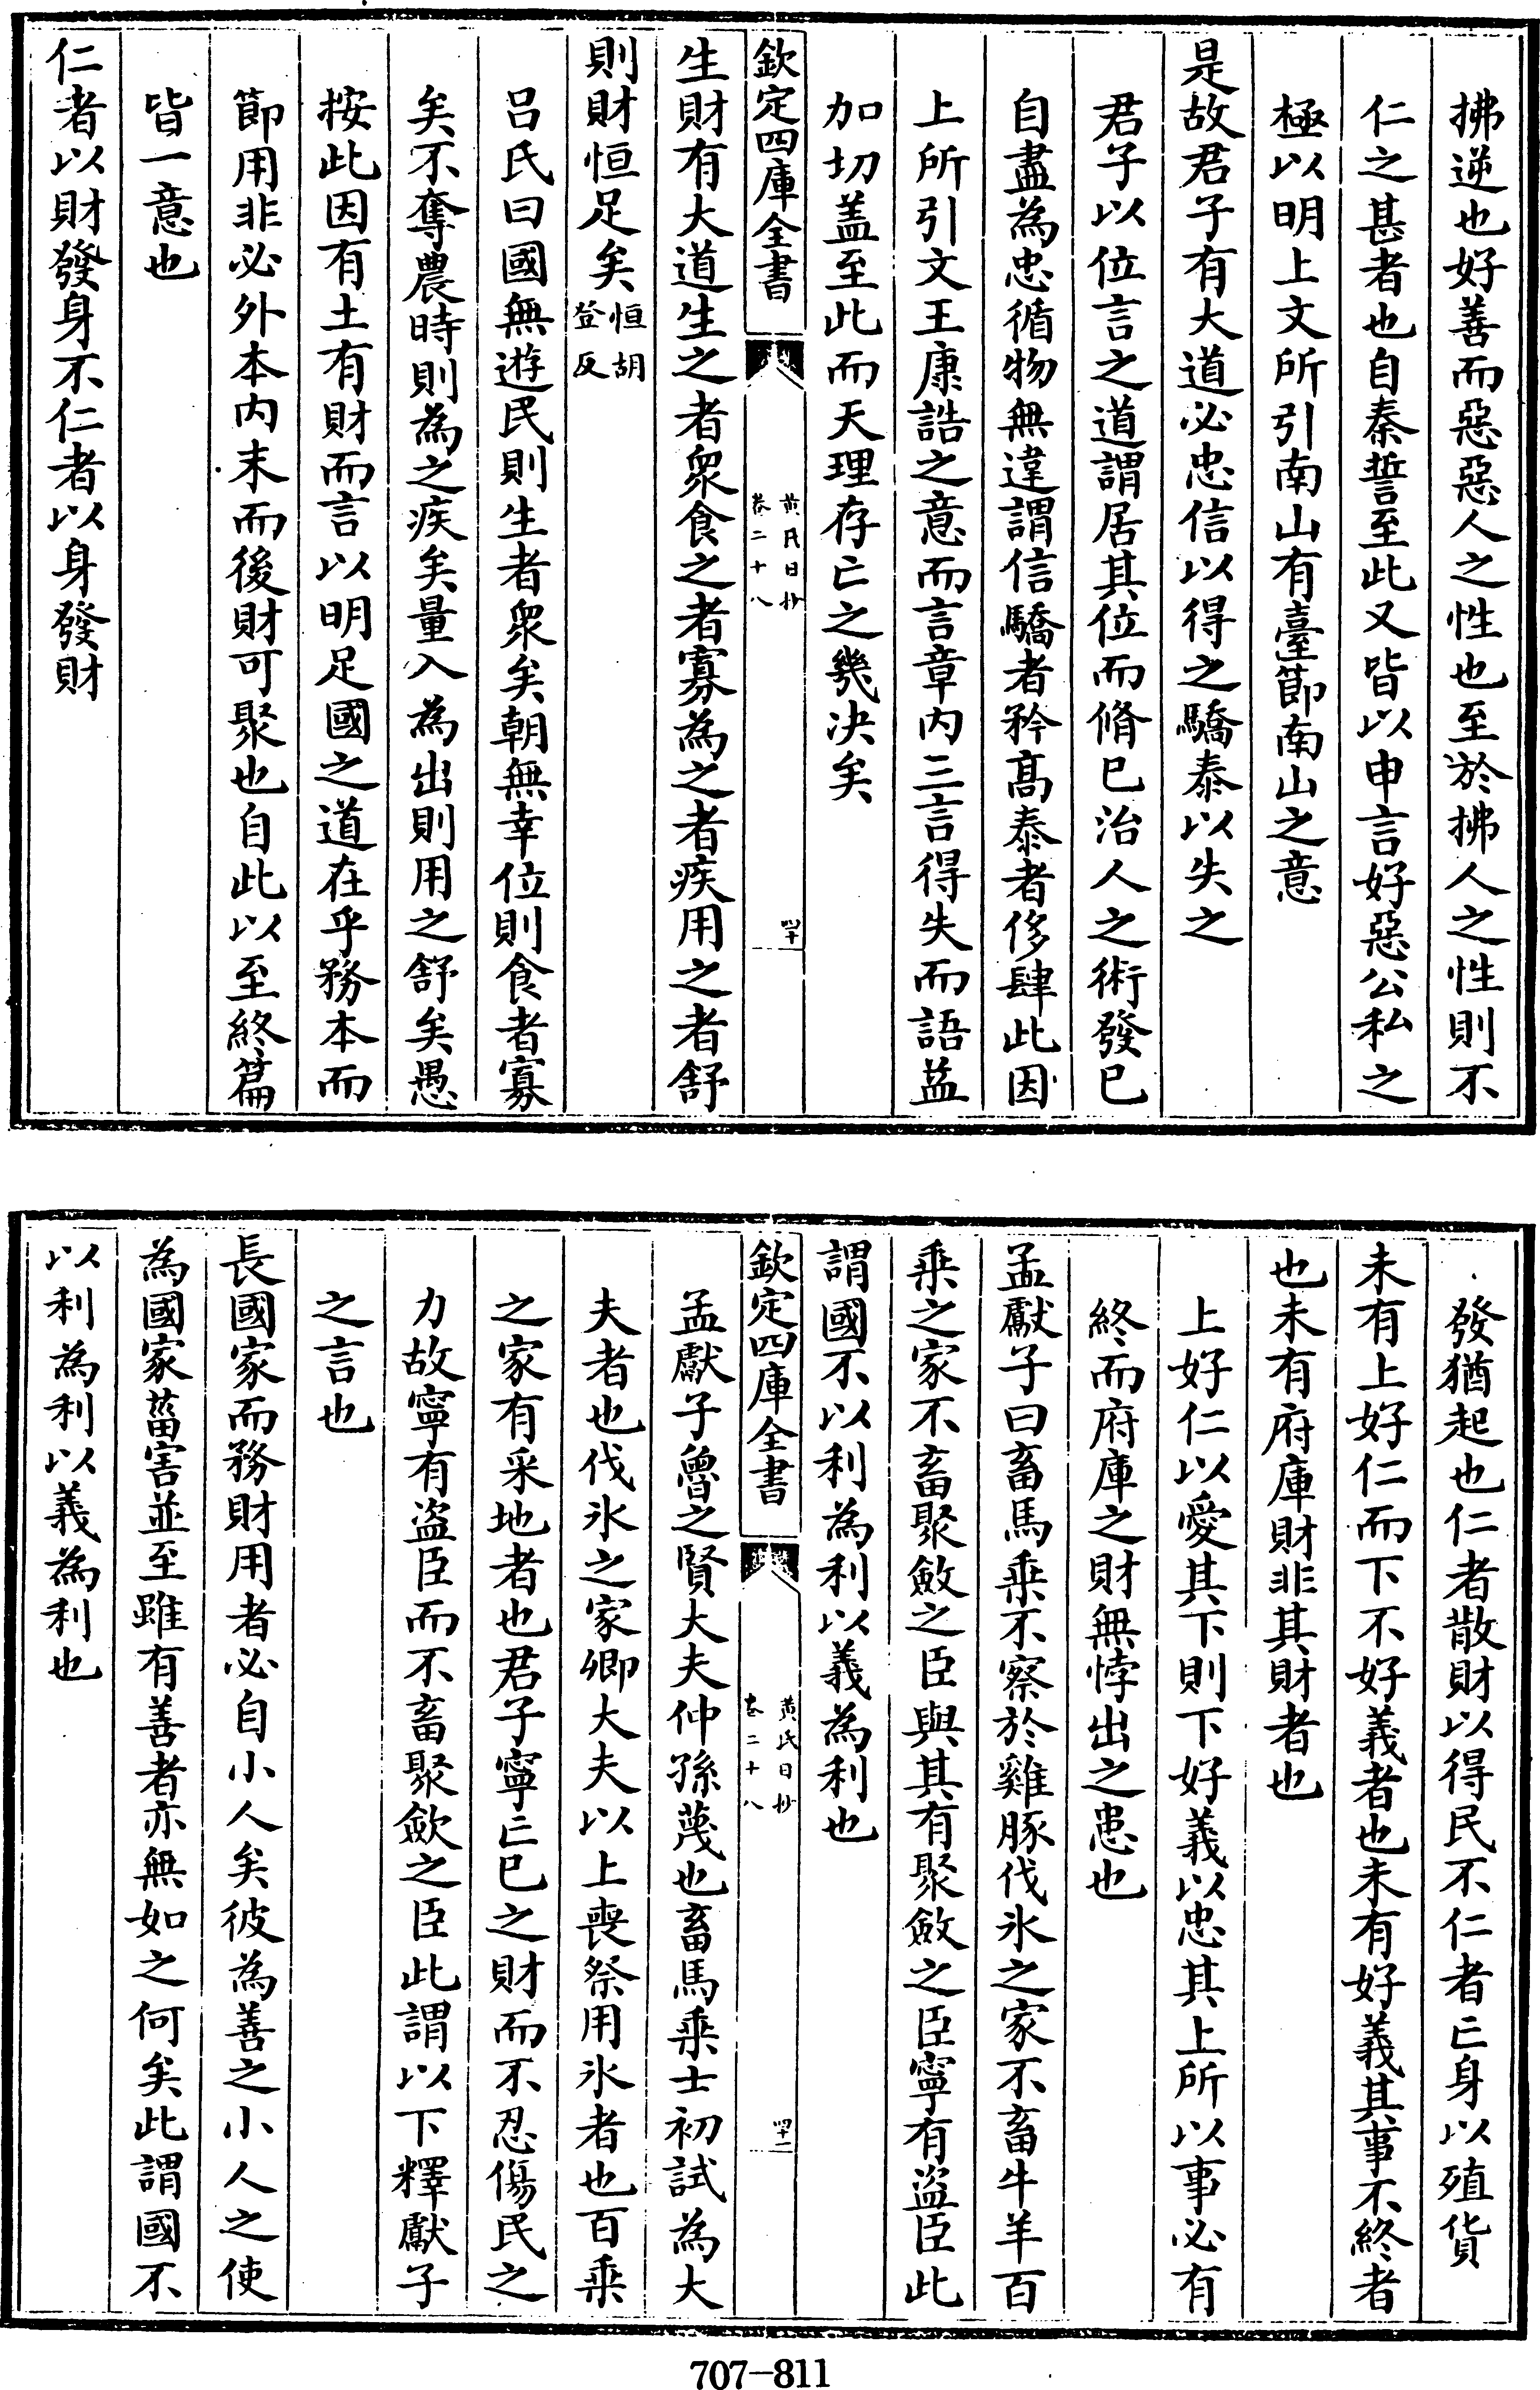 拂逆也好善而惡惡人之性也至於拂人之性則不
仁之甚者也自秦誓至此又皆以申言好惡公私之
極以明上文所引南山有臺節南山之意
是故君子有大道必忠信以得之驕泰以失之
君子以位言之道謂居其位而脩已治人之術發已
自盡為忠循物無違謂信驕者矜髙泰者侈肆此因
上所引文王康誥之意而言章内三言得失而語益
加切盖至此而天理存亡之幾决矣
欽定四庫全書
黄氏日抄
卷二十八
四十
生財有大道生之者衆食之者寡為之者疾用之者舒
則財恒足矣恒胡登反
吕氏曰國無遊民則生者衆矣朝無幸位則食者寡
矣不奪農時則為之疾矣量入為出則用之舒矣愚
按此因有土有財而言以明足國之道在乎務本而
節用非必外本内末而後財可聚也自此以至終篇
皆一意也
仁者以財發身不仁者以身發財
發猶起也仁者散財以得民不仁者亡身以殖貨
未有上好仁而下不好義者也未有好義其事不終者
也未有府庫財非其財者也
上好仁以愛其下則下好義以忠其上所以事必有
終而府庫之財無悖出之患也
孟獻子曰畜馬乗不察於雞豚伐氷之家不畜牛羊百
乗之家不畜聚斂之臣與其有聚斂之臣寧有盗臣此
謂國不以利為利以義為利也
欽定四庫全書
黄氏日抄
卷二十八
四十一
孟獻子魯之賢大夫仲孫蔑也畜馬乗士初試為大
夫者也伐氷之家卿大夫以上喪祭用氷者也百乗
之家有采地者也君子寧亡已之財而不忍傷民之
力故寧有盗臣而不畜聚歛之臣此謂以下釋獻子
之言也
長國家而務財用者必自小人矣彼為善之小人之使
為國家菑害並至雖有善者亦無如之何矣此謂國不
以利為利以義為利也
707-811